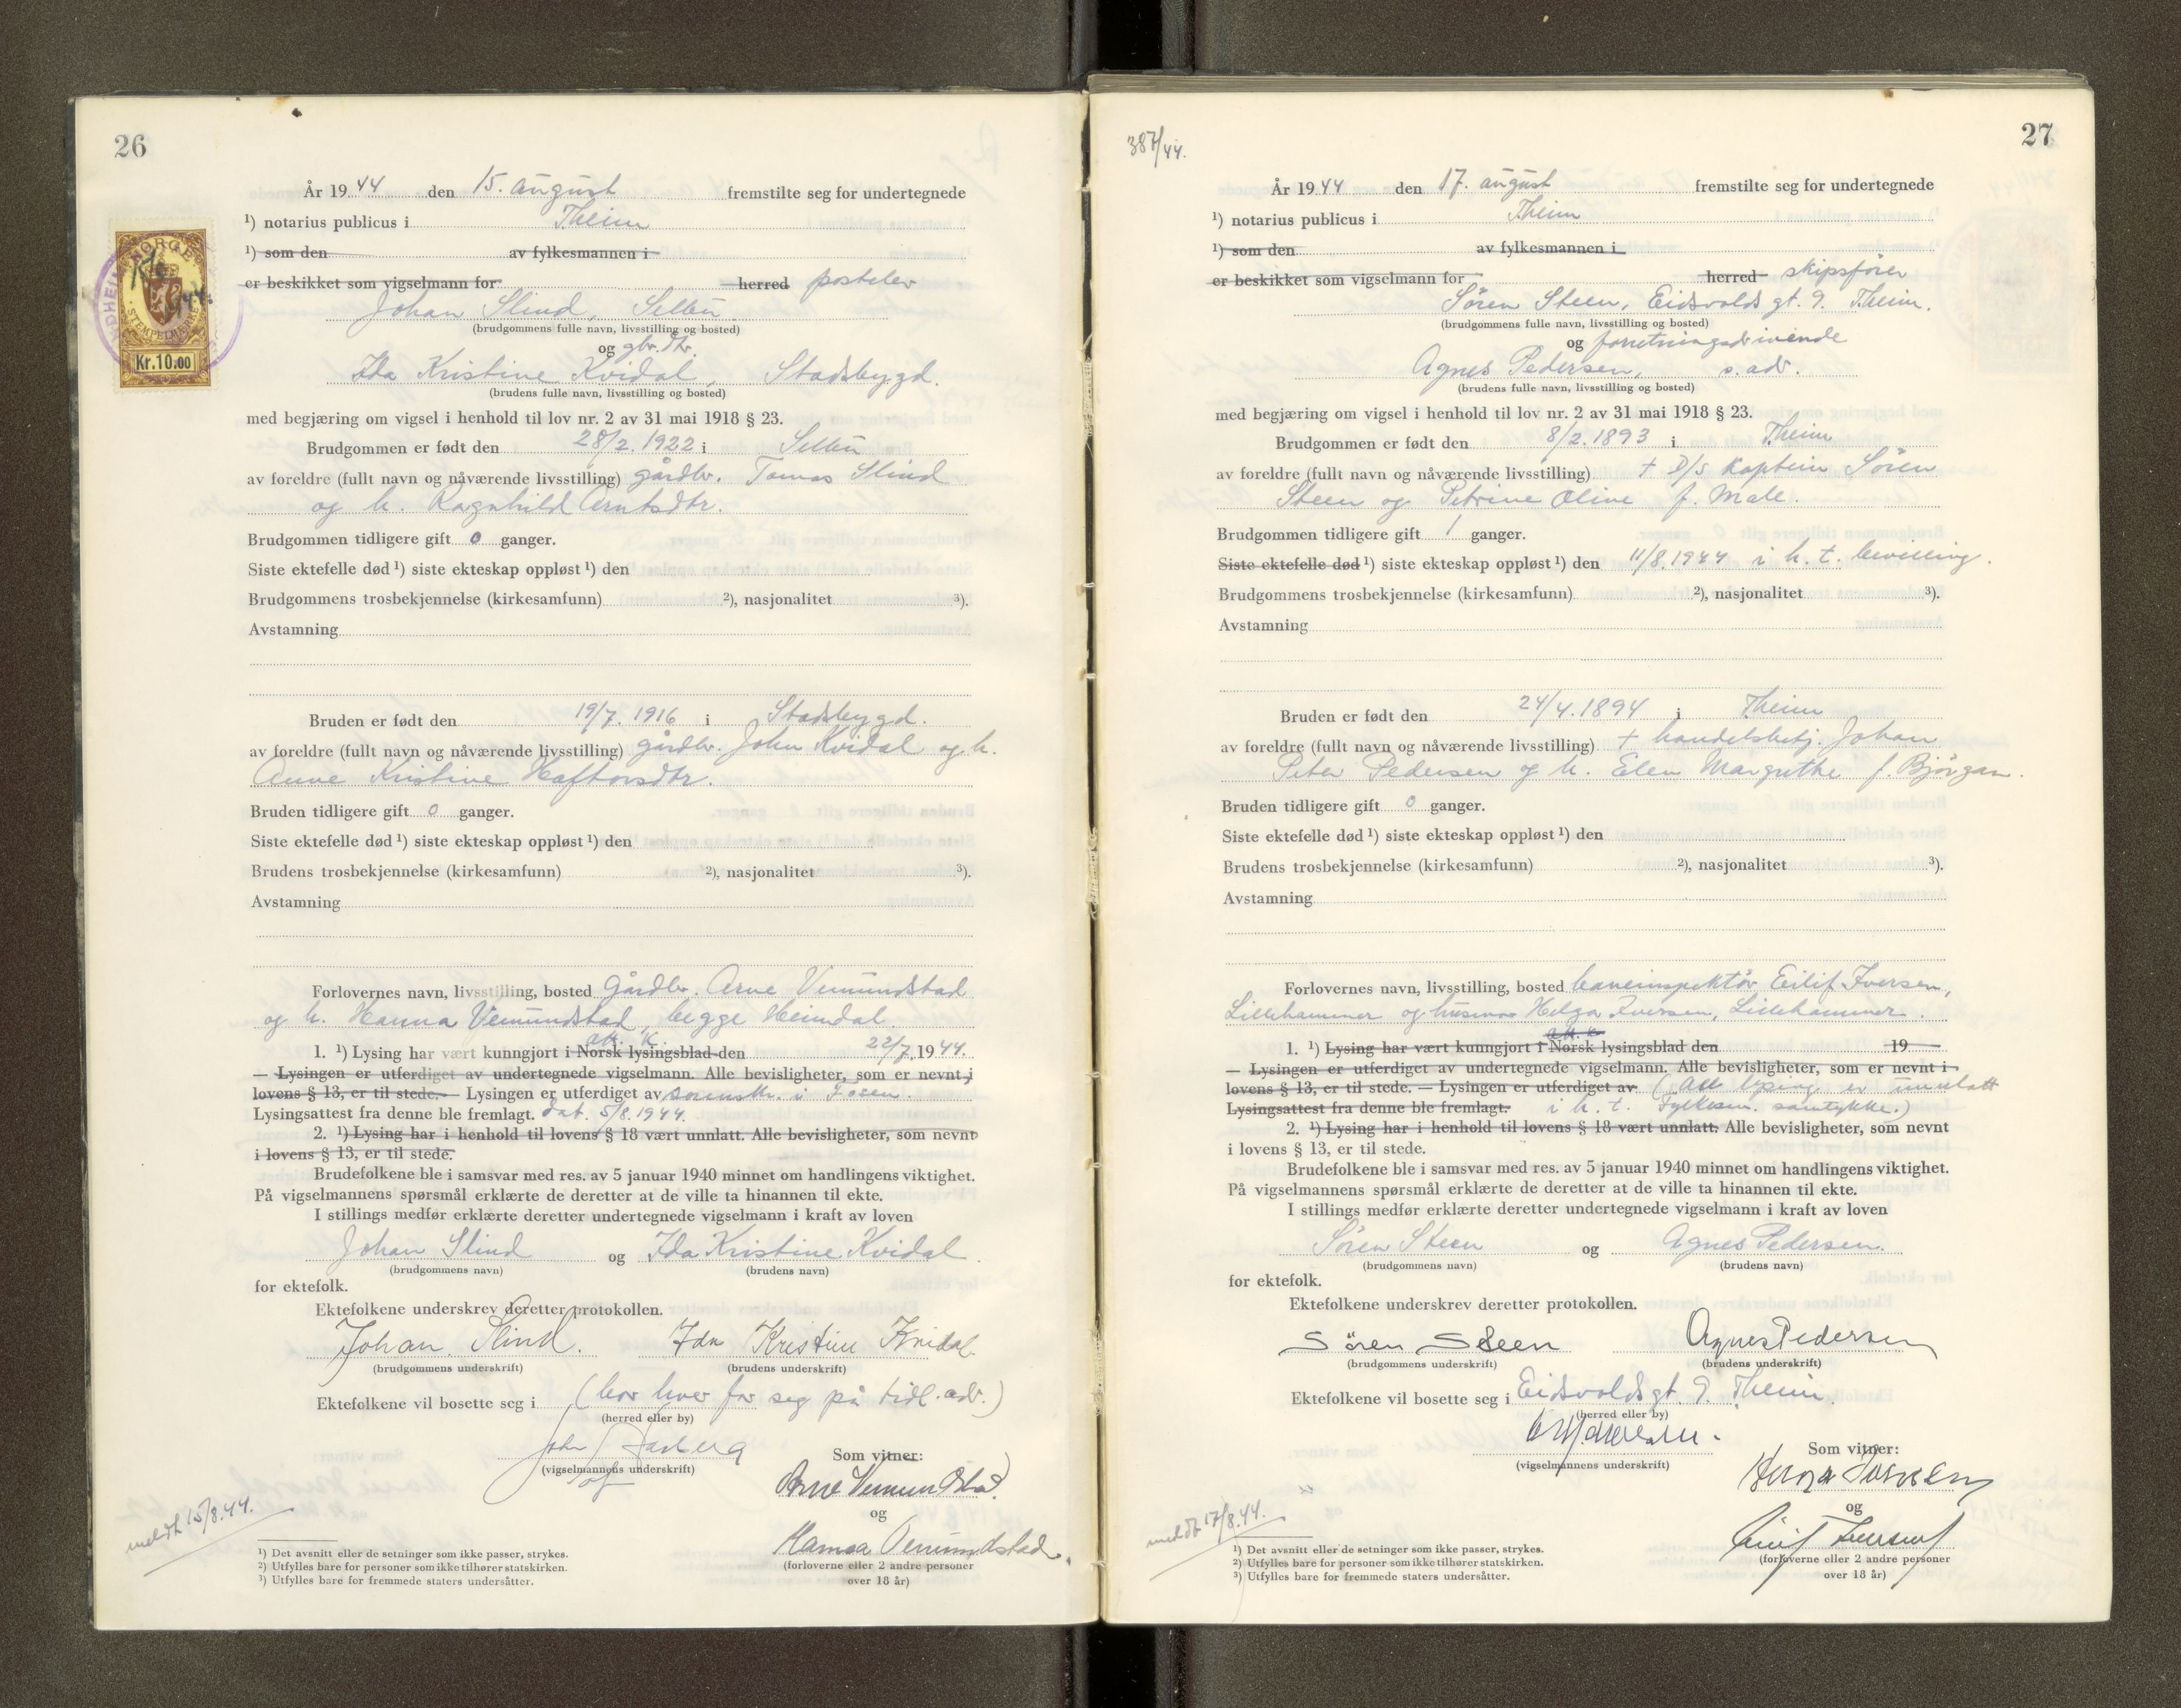 26
År 1944 den 15. august fremstilte seg for undertegnede
¹) notarius publicus i T.heim
¹) som den av fylkesmannen i
er beskikket som vigselmann for herred postelev
Johan Slind, Selbu
(brudgommens fulle navn, livsstilling og bosted)
og gbr.dtr.
Ida Kristine Kvidal, Stadsbygd.
(brudens fulle navn, livsstilling og bosted)
med begjæring om vigsel i henhold til lov nr. 2 av 31 mai 1918 § 23.
Brudgommen er født den 28/2. 1922 i Selbu
av foreldre (fullt navn og nåværende livsstilling) gårdbr. Tomas Slind
og h. Ragnhild Arntsdtr.
Brudgommen tidligere gift 0 ganger.
Siste ektefelle død ¹) siste ekteskap oppløst ¹) den
Brudgommens trosbekjennelse (kirkesamfunn) ²), nasjonalitet ³).
Avstamning
Bruden er født den 19/7. 1916 i Stadsbygd.
av foreldre (fullt navn og nåværende livsstilling) gårdbr. John Kvidal og h.
Anne Kristine Haftorsdtr.
Bruden tidligere gift 0 ganger.
Siste ektefelle død ¹) siste ekteskap oppløst ¹) den
Brudens trosbekjennelse (kirkesamfunn) ²), nasjonalitet ³).
Avstamning
Forlovernes navn, livsstilling, bosted Gårdbr. Arne Vemundstad
og h. Hanna Vemundstad, begge Heimdal.
1. ¹) Lysing har vært kunngjort i Norsk lysingsblad den 22/7. 1944.
— Lysingen er utferdiget av undertegnede vigselmann. Alle bevisligheter, som er nevnt i
lovens § 13, er til stede. — Lysingen er utferdiget av sorenskr. i Fosen.
Lysingsattest fra denne ble fremlagt. dat. 5/8. 1944.
2. ¹) Lysing har i henhold til lovens § 18 vært unnlatt. Alle bevisligheter, som nevnt
i lovens § 13, er til stede.
Brudefolkene ble i samsvar med res. av 5 januar 1940 minnet om handlingens viktighet.
På vigselmannens spørsmål erklærte de deretter at de ville ta hinannen til ekte.
I stillings medfør erklærte deretter undertegnede vigselmann i kraft av loven
Johan Slind og Ida Kristine Kvidal
(brudgommens navn) (brudens navn)
for ektefolk.
Ektefolkene underskrev deretter protokollen.
Johan Slind. Ida Kristine Kvidal.
(brudgommens underskrift) (brudens underskrift)
Ektefolkene vil bosette seg i (bor hver for seg på tidl. adr.)
(herred eller by)
(vigselmannens underskrift)
Som vitner:
Arne Vemundstad.
og
Hanna Vemundstad.
(forloverne eller 2 andre personer
over 18 år)
meldt 15/8.44.
¹) Det avsnitt eller de setninger som ikke passer, strykes.
²) Utfylles bare for personer som ikke tilhører statskirken.
³) Utfylles bare for fremmede staters undersåtter.
NORGE
STEMPELMERKE
Kr.10.00
387/44.
27
År 1944 den 17. august fremstilte seg for undertegnede
¹) notarius publicus i T.heim
¹) som den av fylkesmannen i
er beskikket som vigselmann for herred skipsfører
Søren Steen, Eidsvolds gt. 9. T.heim.
(brudgommens fulle navn, livsstilling og bosted)
og forretningsdrivende
Agnes Pedersen, s. adr.
(brudens fulle navn, livsstilling og bosted)
med begjæring om vigsel i henhold til lov nr. 2 av 31 mai 1918 § 23.
Brudgommen er født den 8/2. 1893 i T.heim
av foreldre (fullt navn og nåværende livsstilling) + D/S kaptein Søren
Steen og Petrine Oline f. Male.
Brudgommen tidligere gift 1 ganger.
Siste ektefelle død ¹) siste ekteskap oppløst ¹) den 11/8. 1944 i h. t. bevilling.
Brudgommens trosbekjennelse (kirkesamfunn) ²), nasjonalitet ³).
Avstamning
Bruden er født den 24/4. 1894 i T.heim
av foreldre (fullt navn og nåværende livsstilling) + handelsbetj. Johan
Peter Pedersen og h. Elen Margrethe f. Bjørgan.
Bruden tidligere gift 0 ganger.
Siste ektefelle død ¹) siste ekteskap oppløst ¹) den
Brudens trosbekjennelse (kirkesamfunn) ²), nasjonalitet ³).
Avstamning
Forlovernes navn, livsstilling, bosted baneinspektør Eilif Iversen,
Lillehammer og husmor Helga Iversen, Lillehammer.
1. ¹) Lysing har vært kunngjort i Norsk lysingsblad den 19
— Lysingen er utferdiget av undertegnede vigselmann. Alle bevisligheter, som er nevnt i
lovens § 13, er til stede. — Lysingen er utferdiget av (All lysing er unnlatt
Lysingsattest fra denne ble fremlagt. i h. t. Fylkesm. samtykke.)
2. ¹) Lysing har i henhold til lovens § 18 vært unnlatt. Alle bevisligheter, som nevnt
i lovens § 13, er til stede.
Brudefolkene ble i samsvar med res. av 5 januar 1940 minnet om handlingens viktighet.
På vigselmannens spørsmål erklærte de deretter at de ville ta hinannen til ekte.
I stillings medfør erklærte deretter undertegnede vigselmann i kraft av loven
Søren Steen og Agnes Pedersen.
(brudgommens navn) (brudens navn)
for ektefolk.
Ektefolkene underskrev deretter protokollen.
Søren Steen Agnes Pedersen
(brudgommens underskrift) (brudens underskrift)
Ektefolkene vil bosette seg i Eidsvoldsgt. 9. T.heim.
(herred eller by)
(vigselmannens underskrift)
Som vitner:
Helga Iversen
og
Eilif Iversen
(forloverne eller 2 andre personer
over 18 år)
meldt 17/8.44.
¹) Det avsnitt eller de setninger som ikke passer, strykes.
²) Utfylles bare for personer som ikke tilhører statskirken.
³) Utfylles bare for fremmede staters undersåtter.